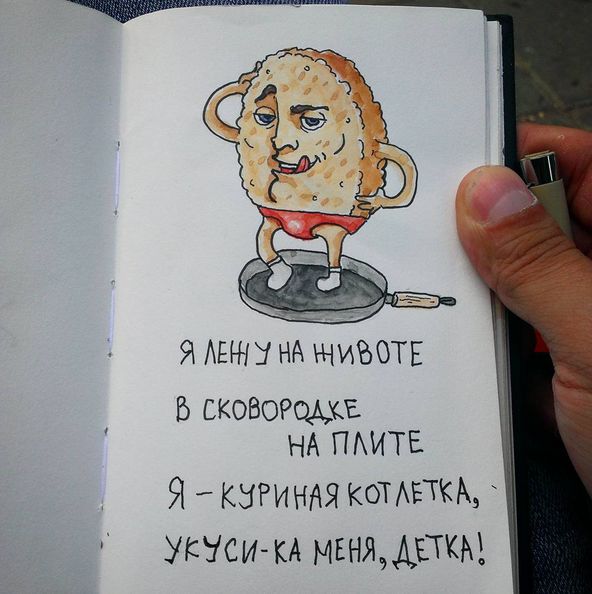 Я ЛЕЖУ НА ЖИВОТЕ
В СКОВОРОДКЕ
НА ПЛИТЕ
Я – КУРИНАЯ КОТЛЕТКА,
УКУСИ-КА МЕНЯ, ДЕТКА!